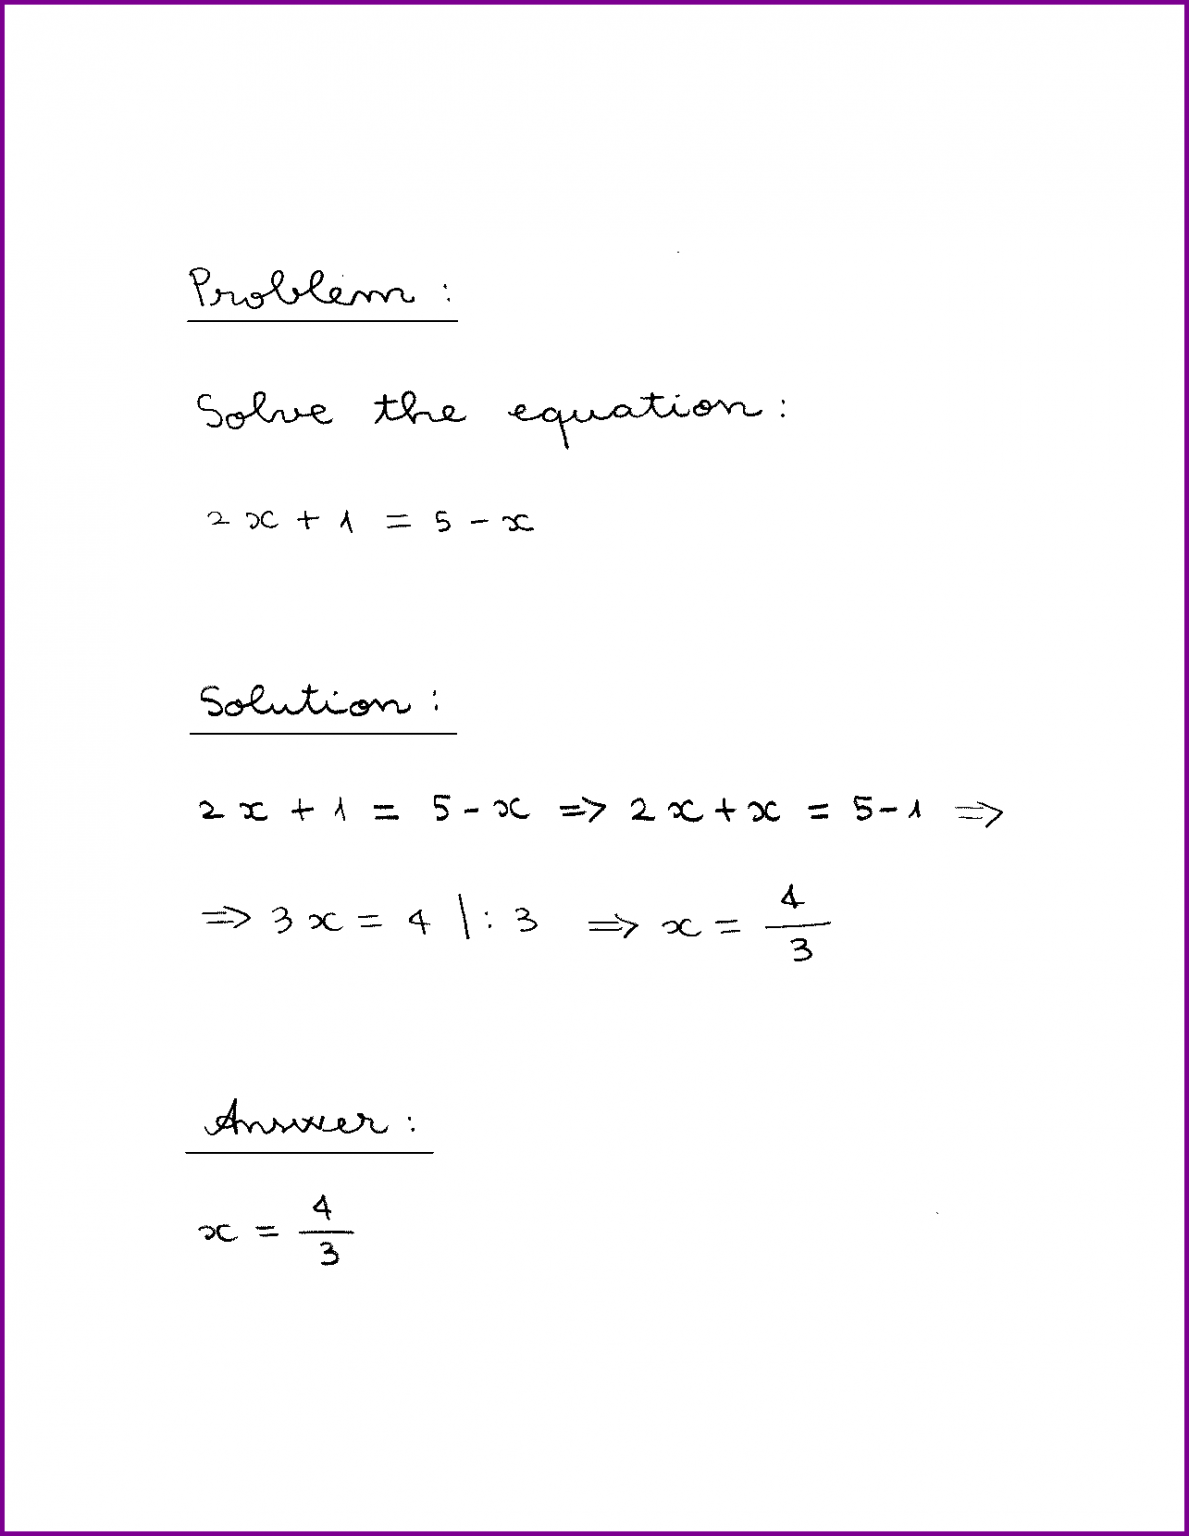 Problem :
Solve the equation :
2x + 1 = 5 - x
Solution :
2x + 1 = 5 - x => 2x + x = 5 - 1 =>
=> 3x = 4 | : 3 => x = 4/3
Answer :
x = 4/3